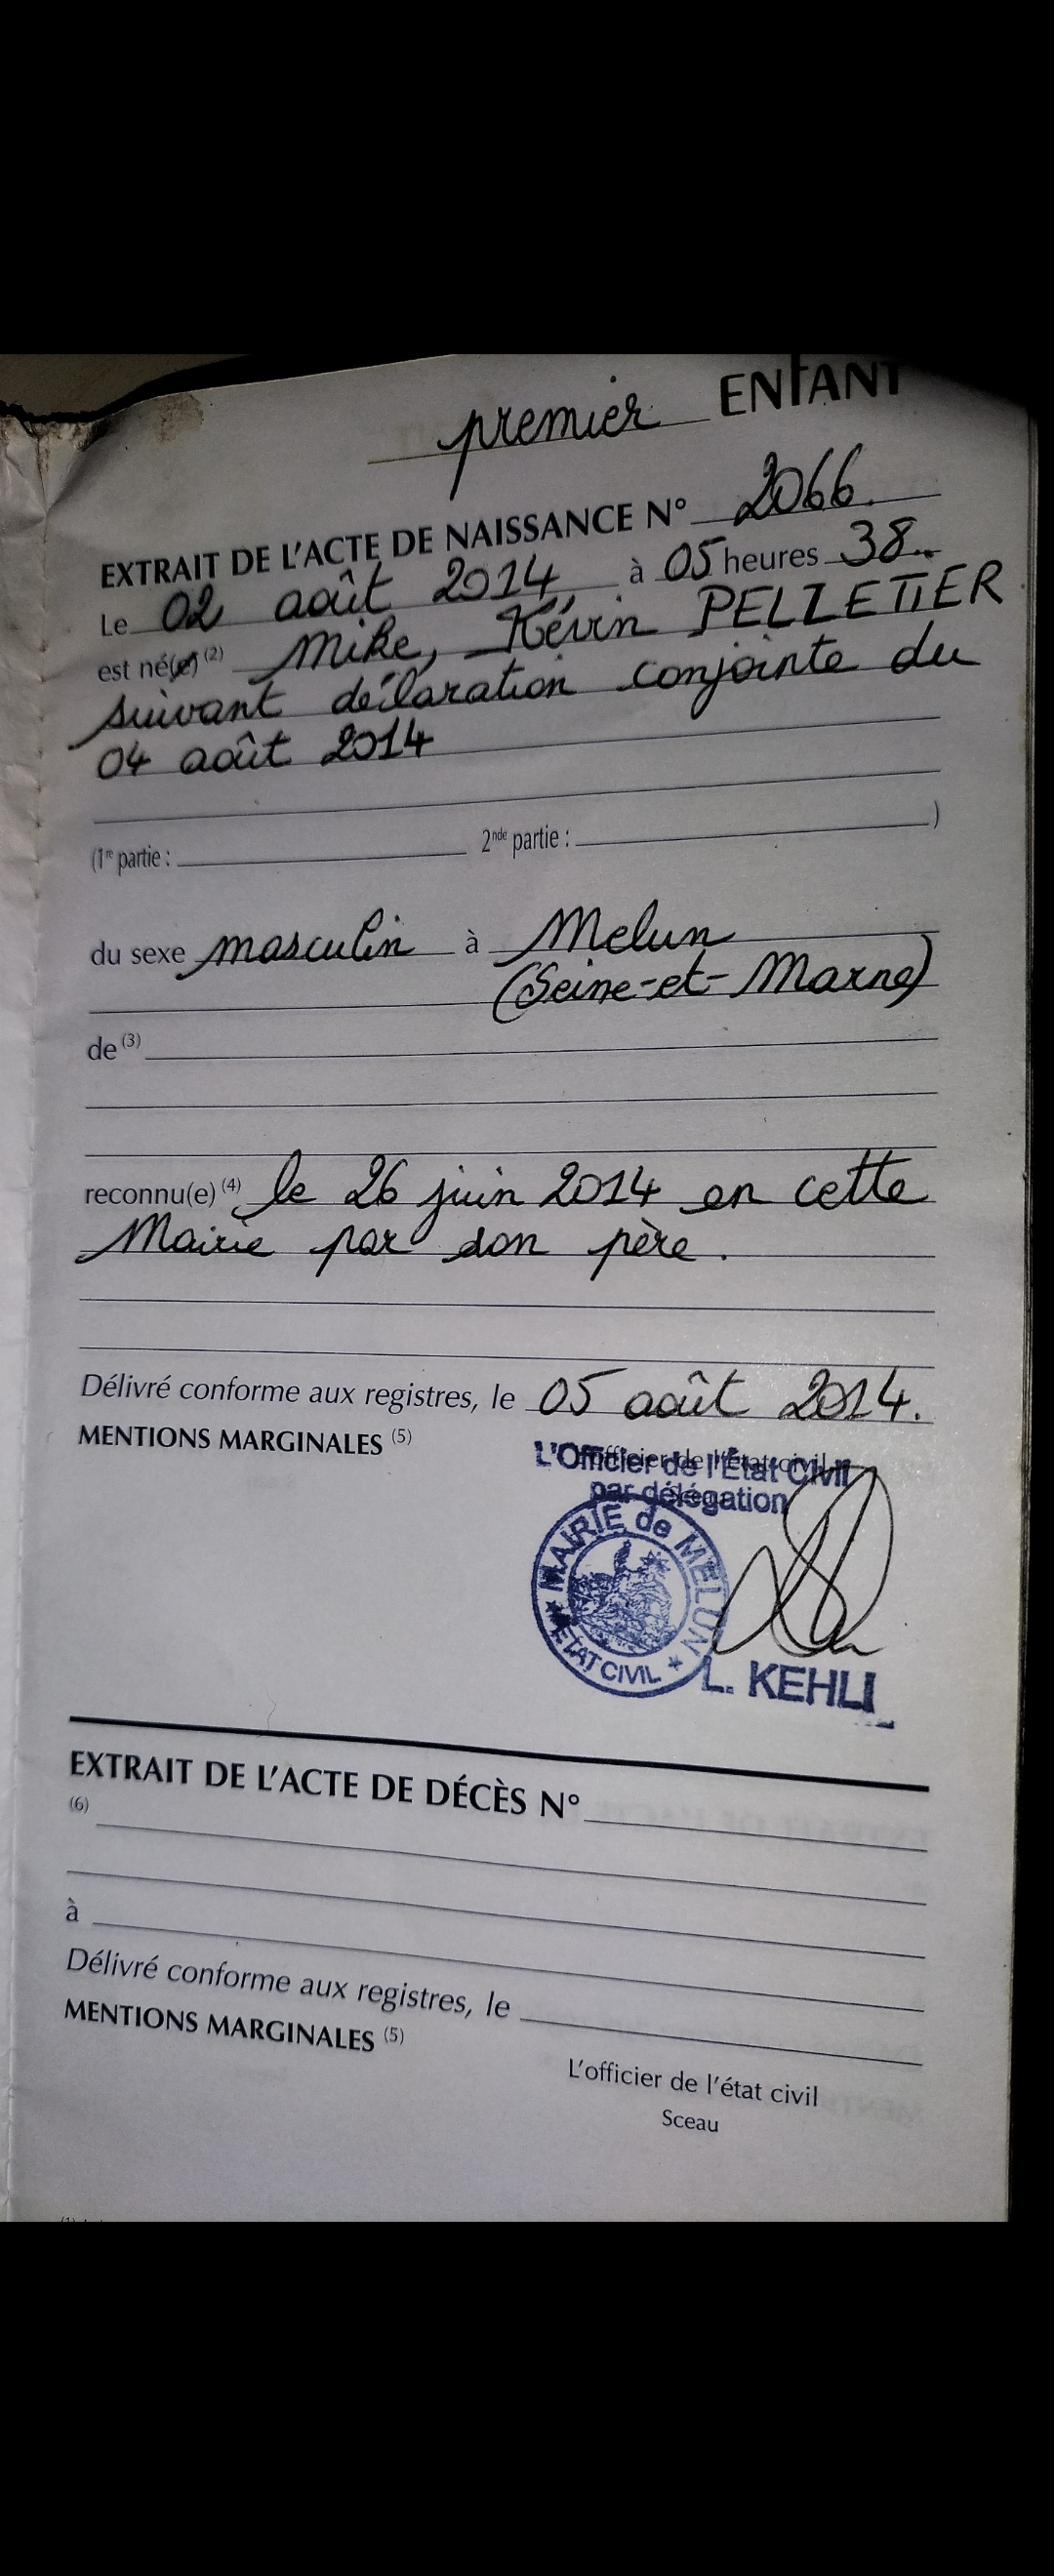 premier ENFANT
EXTRAIT DE L'ACTE DE NAISSANCE N° 2066.
Le 02 août 2014 à 05 heures 38
est né(e) (2) Mike, Kévin PELLETIER
suivant déclaration conjointe du
04 août 2014
(1re partie : 2nde partie : )
du sexe masculin à Melun
(Seine-et-Marne)
de (3)
reconnu(e) (4) le 26 juin 2014 en cette
Mairie par son père.
Délivré conforme aux registres, le 05 août 2014.
MENTIONS MARGINALES (5)
L'officier de l'état civil
L'Officier de l'État Civil
par délégation
MAIRIE de MELUN
ÉTAT CIVIL
L. KEHLI
EXTRAIT DE L'ACTE DE DÉCÈS N°
(6)
à
Délivré conforme aux registres, le
MENTIONS MARGINALES (5)
L'officier de l'état civil
Sceau